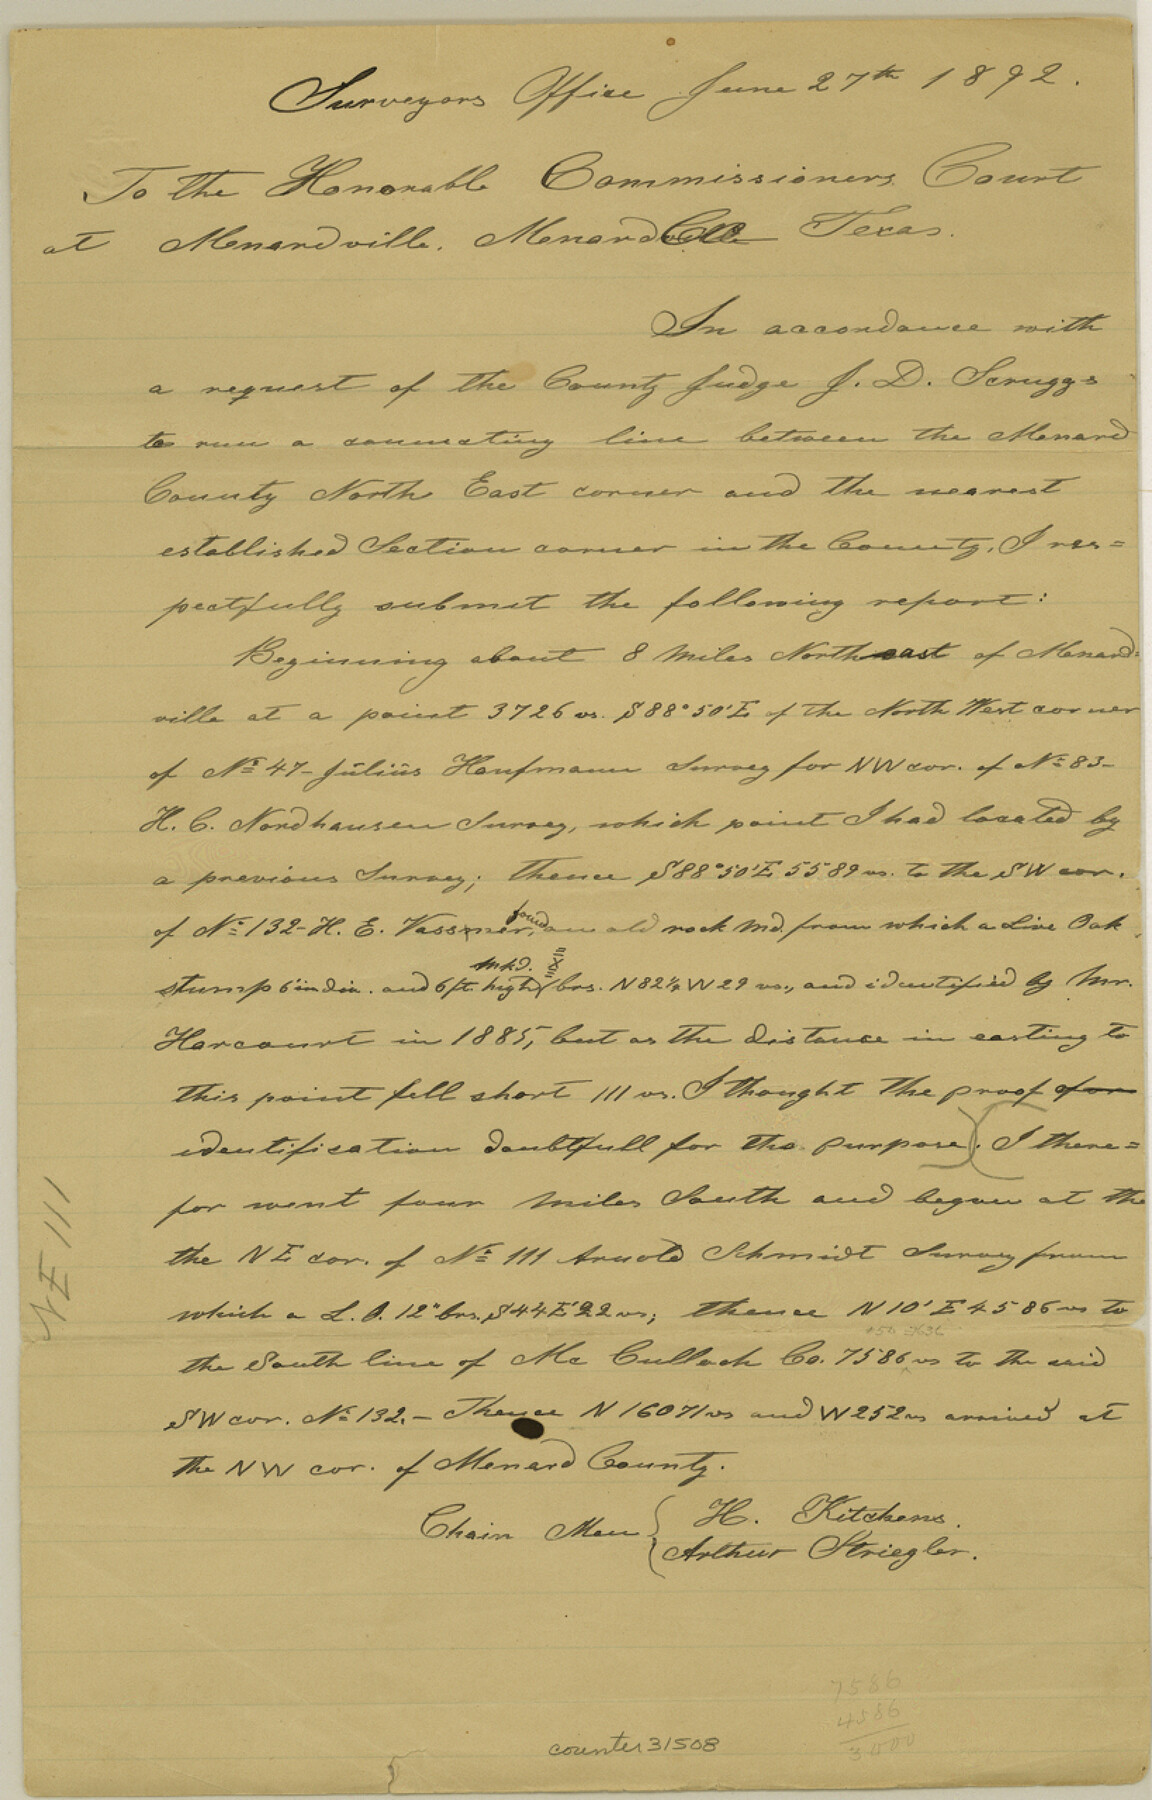 Surveyors Office June 27th 1892.
To the Honorable Commissioners Court
at Menardville. Menard Co. Texas.
In accordance with
a request of the County Judge J. D. Scruggs
to run a connecting line between the Menard
County North East corner and the nearest
established Section corner in the County, I res=
pectfully submit the following report:
Beginning about 8 miles North east of Menard=
ville at a point 3726 vs. S88°50'E of the North West corner
of No 47- Julius Haufmann Survey for NW cor. of No 83-
H. C. Nordhausen Survey, which point I had located by
a previous Survey; thence S88°50'E 5589 vs. to the SW cor.
found
of No 132- H. E. Vassmer, an old rock Md. from which a Live Oak
mkd.
stump 6 in dia. and 6 ft. high brs. N82½W 29 vs., and identified by Mr.
Harcourt in 1885, but as the distance in easting to
this point fell short 111 vs. I thought the proof for
identification doubtfull for the purpose. I there=
for went four miles South and began at the
the NE cor. of No 111 Arnold Schmidt Survey from
which a L. O. 12" brs. S44E 22 vs; thence N10'E 4586 vs to
the South line of Mc Culloch Co. 7586 vs to the said
SW cor. No 132. - Thence N 16071 vs and W 252 vs arrived at
the NW cor. of Menard County.
Chain Men { H. Kitchens.
Arthur Striegler.
NE 111
7586
4586
3000
counter 31508